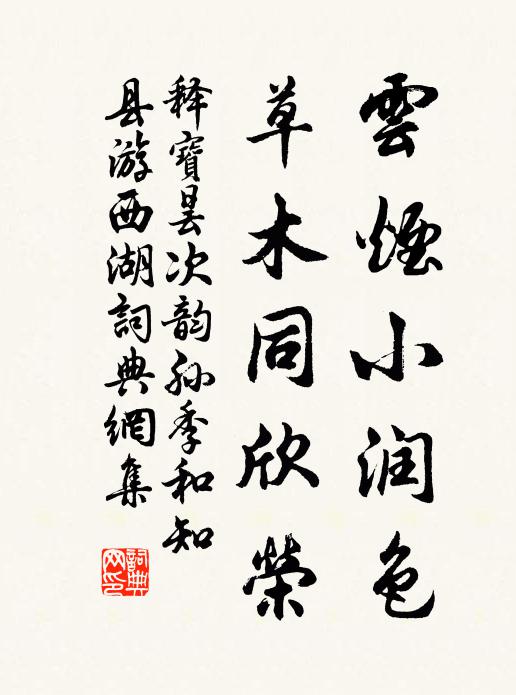 雲煙小润色
草木同欣榮
释寶曇次韵孙季和知
县游西湖詞典網集
詞典
网印